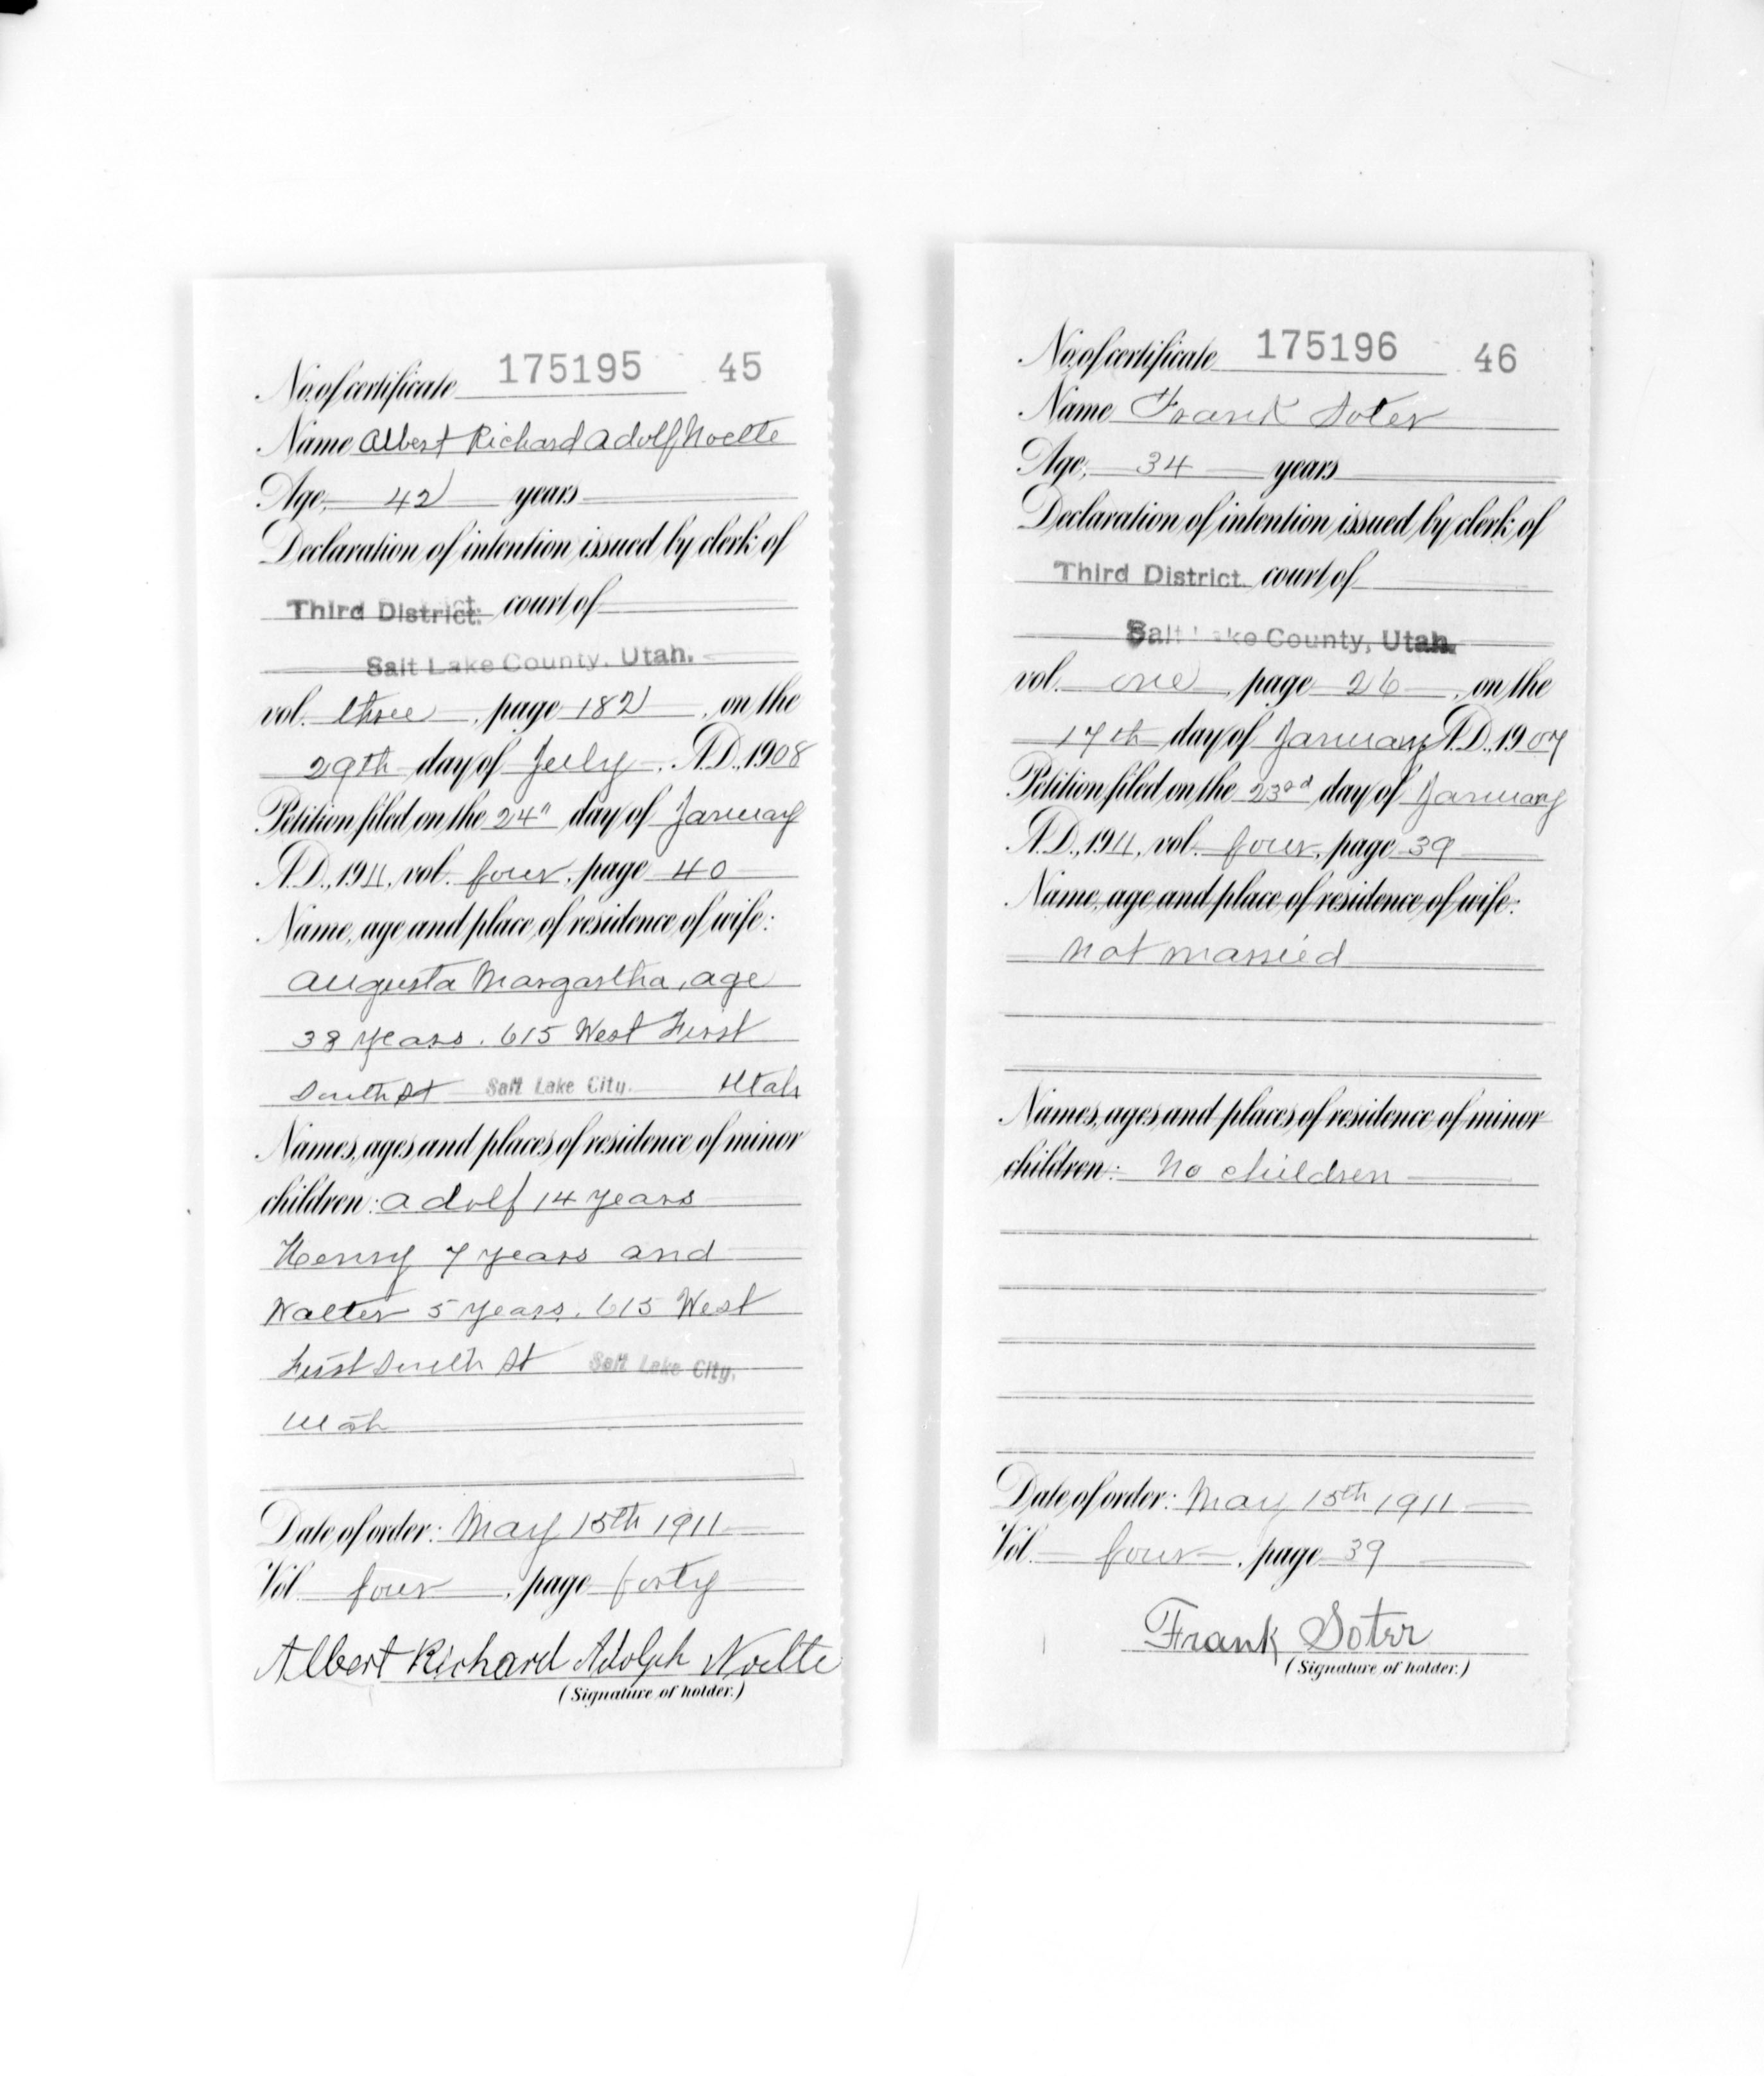 No. of certificate 175195 45
Name Albert Richard Adolf Noelte
Age, 42 years
Declaration of intention issued by clerk of
Third District. court of
Salt Lake County, Utah.
vol. three, page 182, on the
29th day of July, A.D., 1908
Petition filed on the 24" day of January
A.D., 1911, vol. four, page 40
Name, age and place of residence of wife:
Augusta Margartha, age
38 years. 615 West First
South St Salt Lake City. Utah
Names, ages and places of residence of minor
children: Adolf 14 years
Henry 7 years and
Walter 5 years. 615 West
First South St Salt Lake City.
Utah
Date of order: May 15th 1911
Vol. four, page forty
Albert Richard Adolph Noelte
(Signature of holder.)
No. of certificate 175196 46
Name Frank Soter
Age, 34 years
Declaration of intention issued by clerk of
Third District. court of
Salt Lake County, Utah.
vol. one, page 26, on the
17th day of January A.D., 1907
Petition filed on the 23rd day of January
A.D., 1911, vol. four, page 39
Name, age and place of residence of wife:
Not married
Names, ages and places of residence of minor
children: No children
Date of order: May 15th 1911
Vol. four, page 39
Frank Soter
(Signature of holder.)